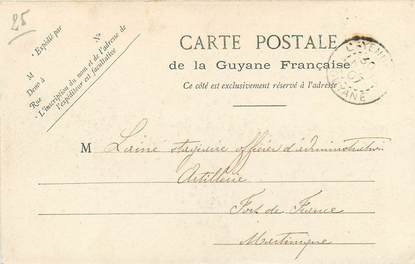 85
Expédié par
M
Demt à
Rue
L'inscription du nom et de l'adresse de
l'expéditeur est facultative
CARTE POSTALE
de la Guyane Française
Ce côté est exclusivement réservé à l'adresse
CAYENNE
07
GUYANE
M Lainé stagiaire officier d'administration
Artillerie
Fort de France
Martinique